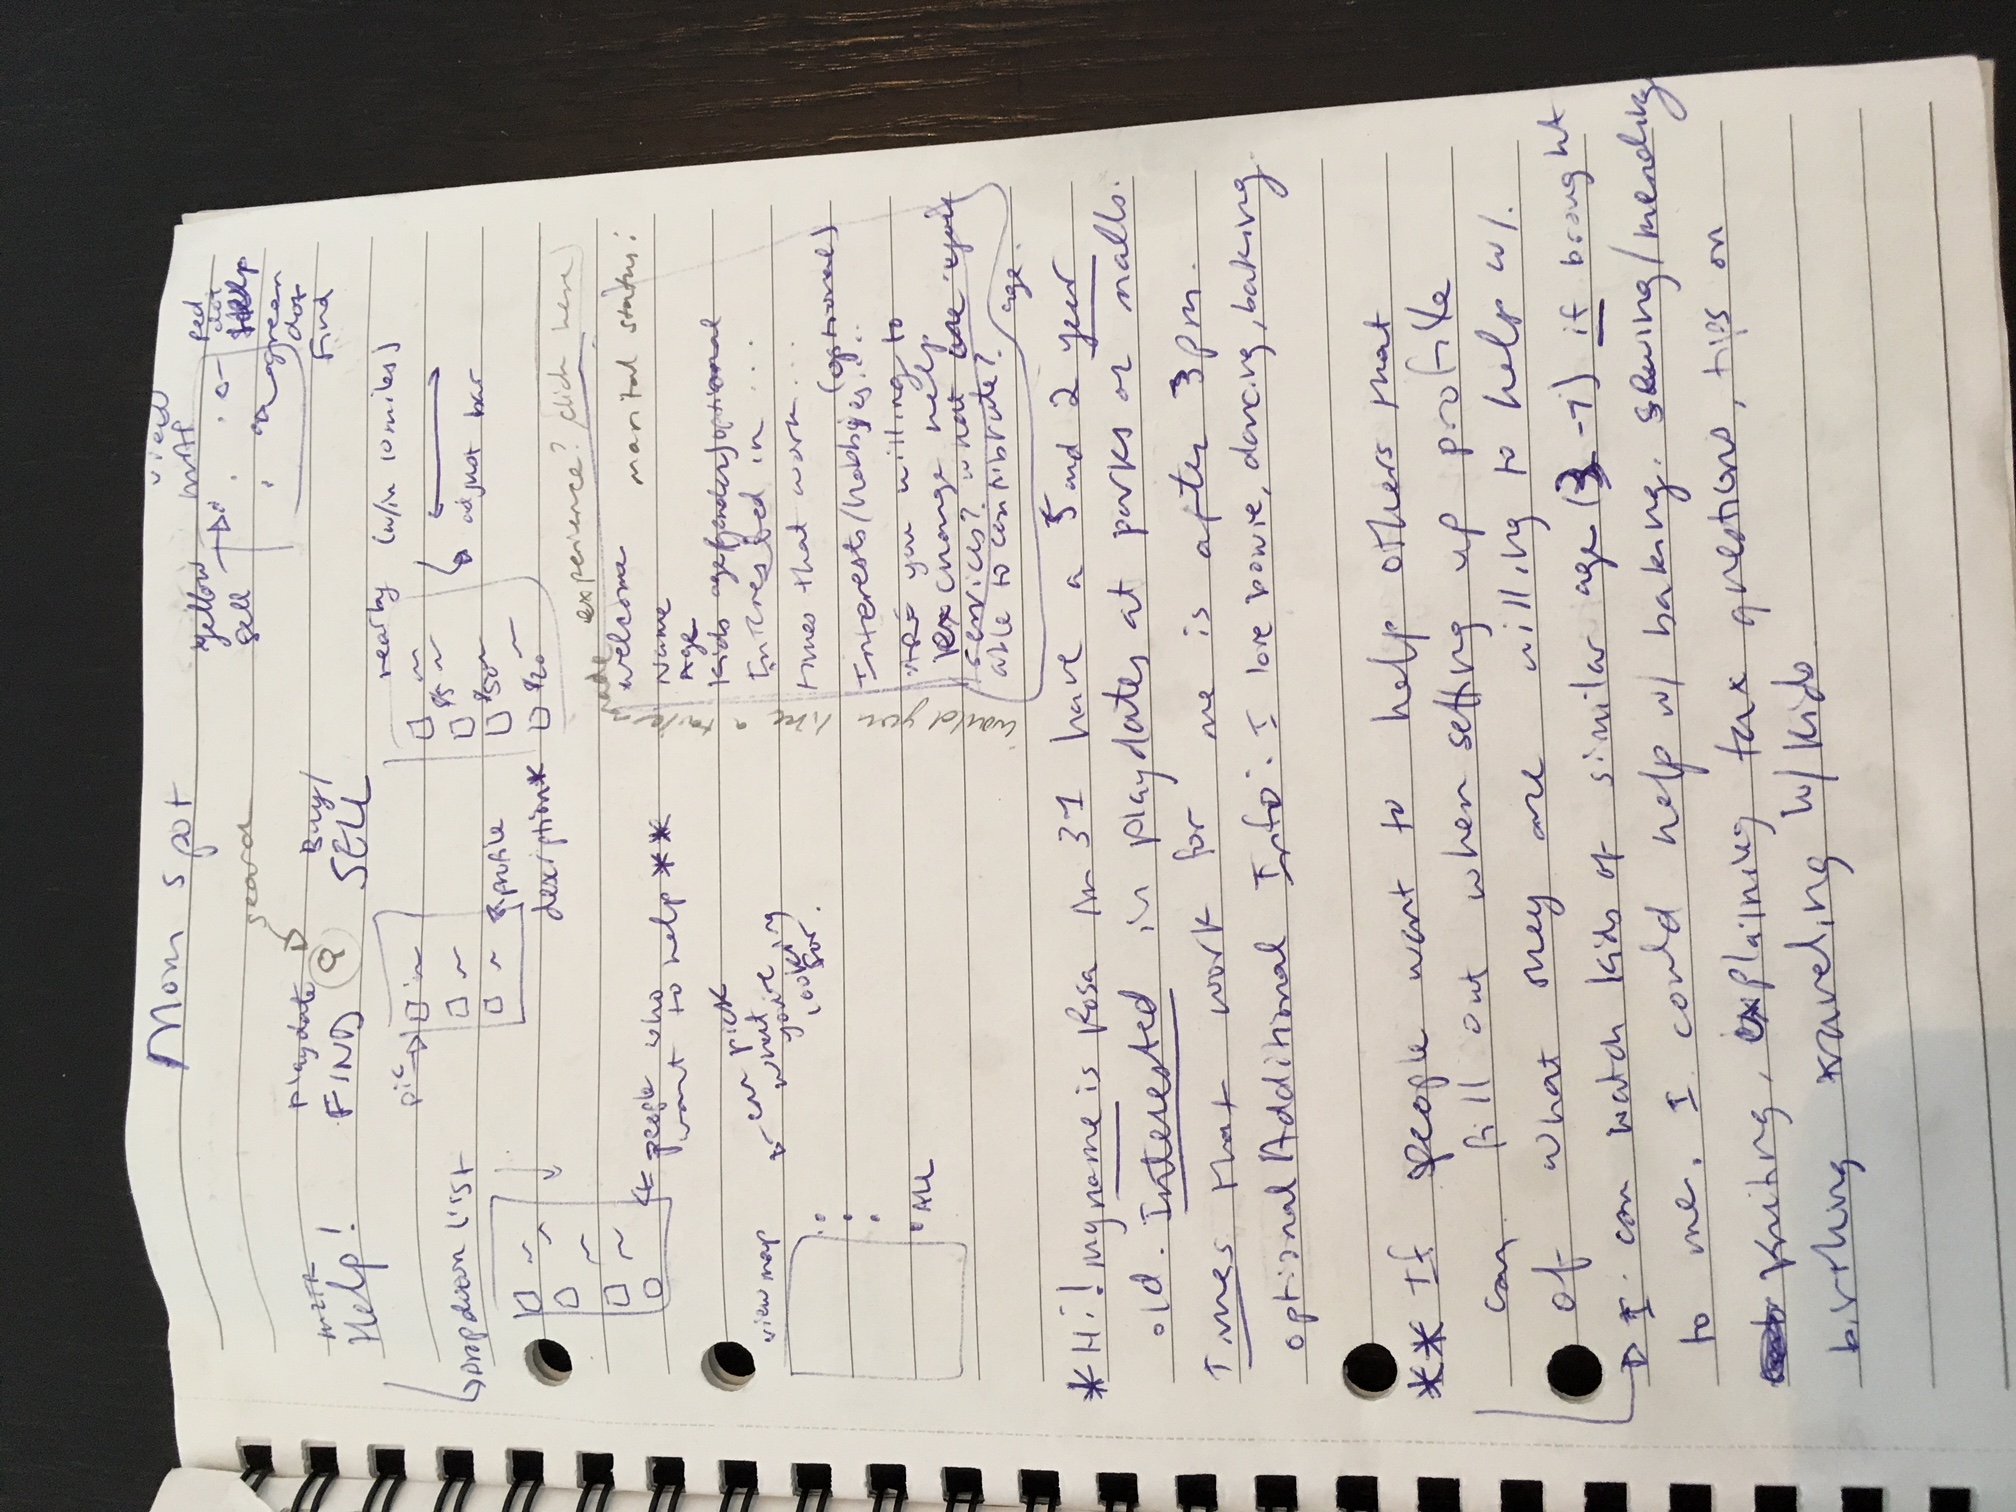 Mom spot
view
MAP
yellow
sell
red
dot
Help
green
dot
Find
search
Help!
playdate
FIND
Buy/
SELL
pic
nearby (w/in 10 miles)
adjust bar
Dropdown list
$5
$50
$20
profile
description*
people who
want to help **
view map
can pick
what
you're
looking
for.
ALL
would you like a tailormade experience? click here
welcome
marital status:
Name
Age
Kids age(gender)optional
Interested in ...
times that work...
Interests/hobbyies.... (optional)
ARE you willing to
exchange help
services? what are you
able to contribute?
age.
* Hi! my name is Rosa Im 31 have a 5 and 2 year
old. Interested in playdates at parks or malls.
Times that work for me is after 3pm.
optional Additional Info: I love bowie, dancing, baking.
** If people want to help others that
can fill out when setting up profile
of what they are willing to help w/.
I can watch kids of similar age (3-7) if brought
to me. I could help w/ baking. sewing/mending
kniting, explaining tax questions, tips on
birthing traveling w/ kids